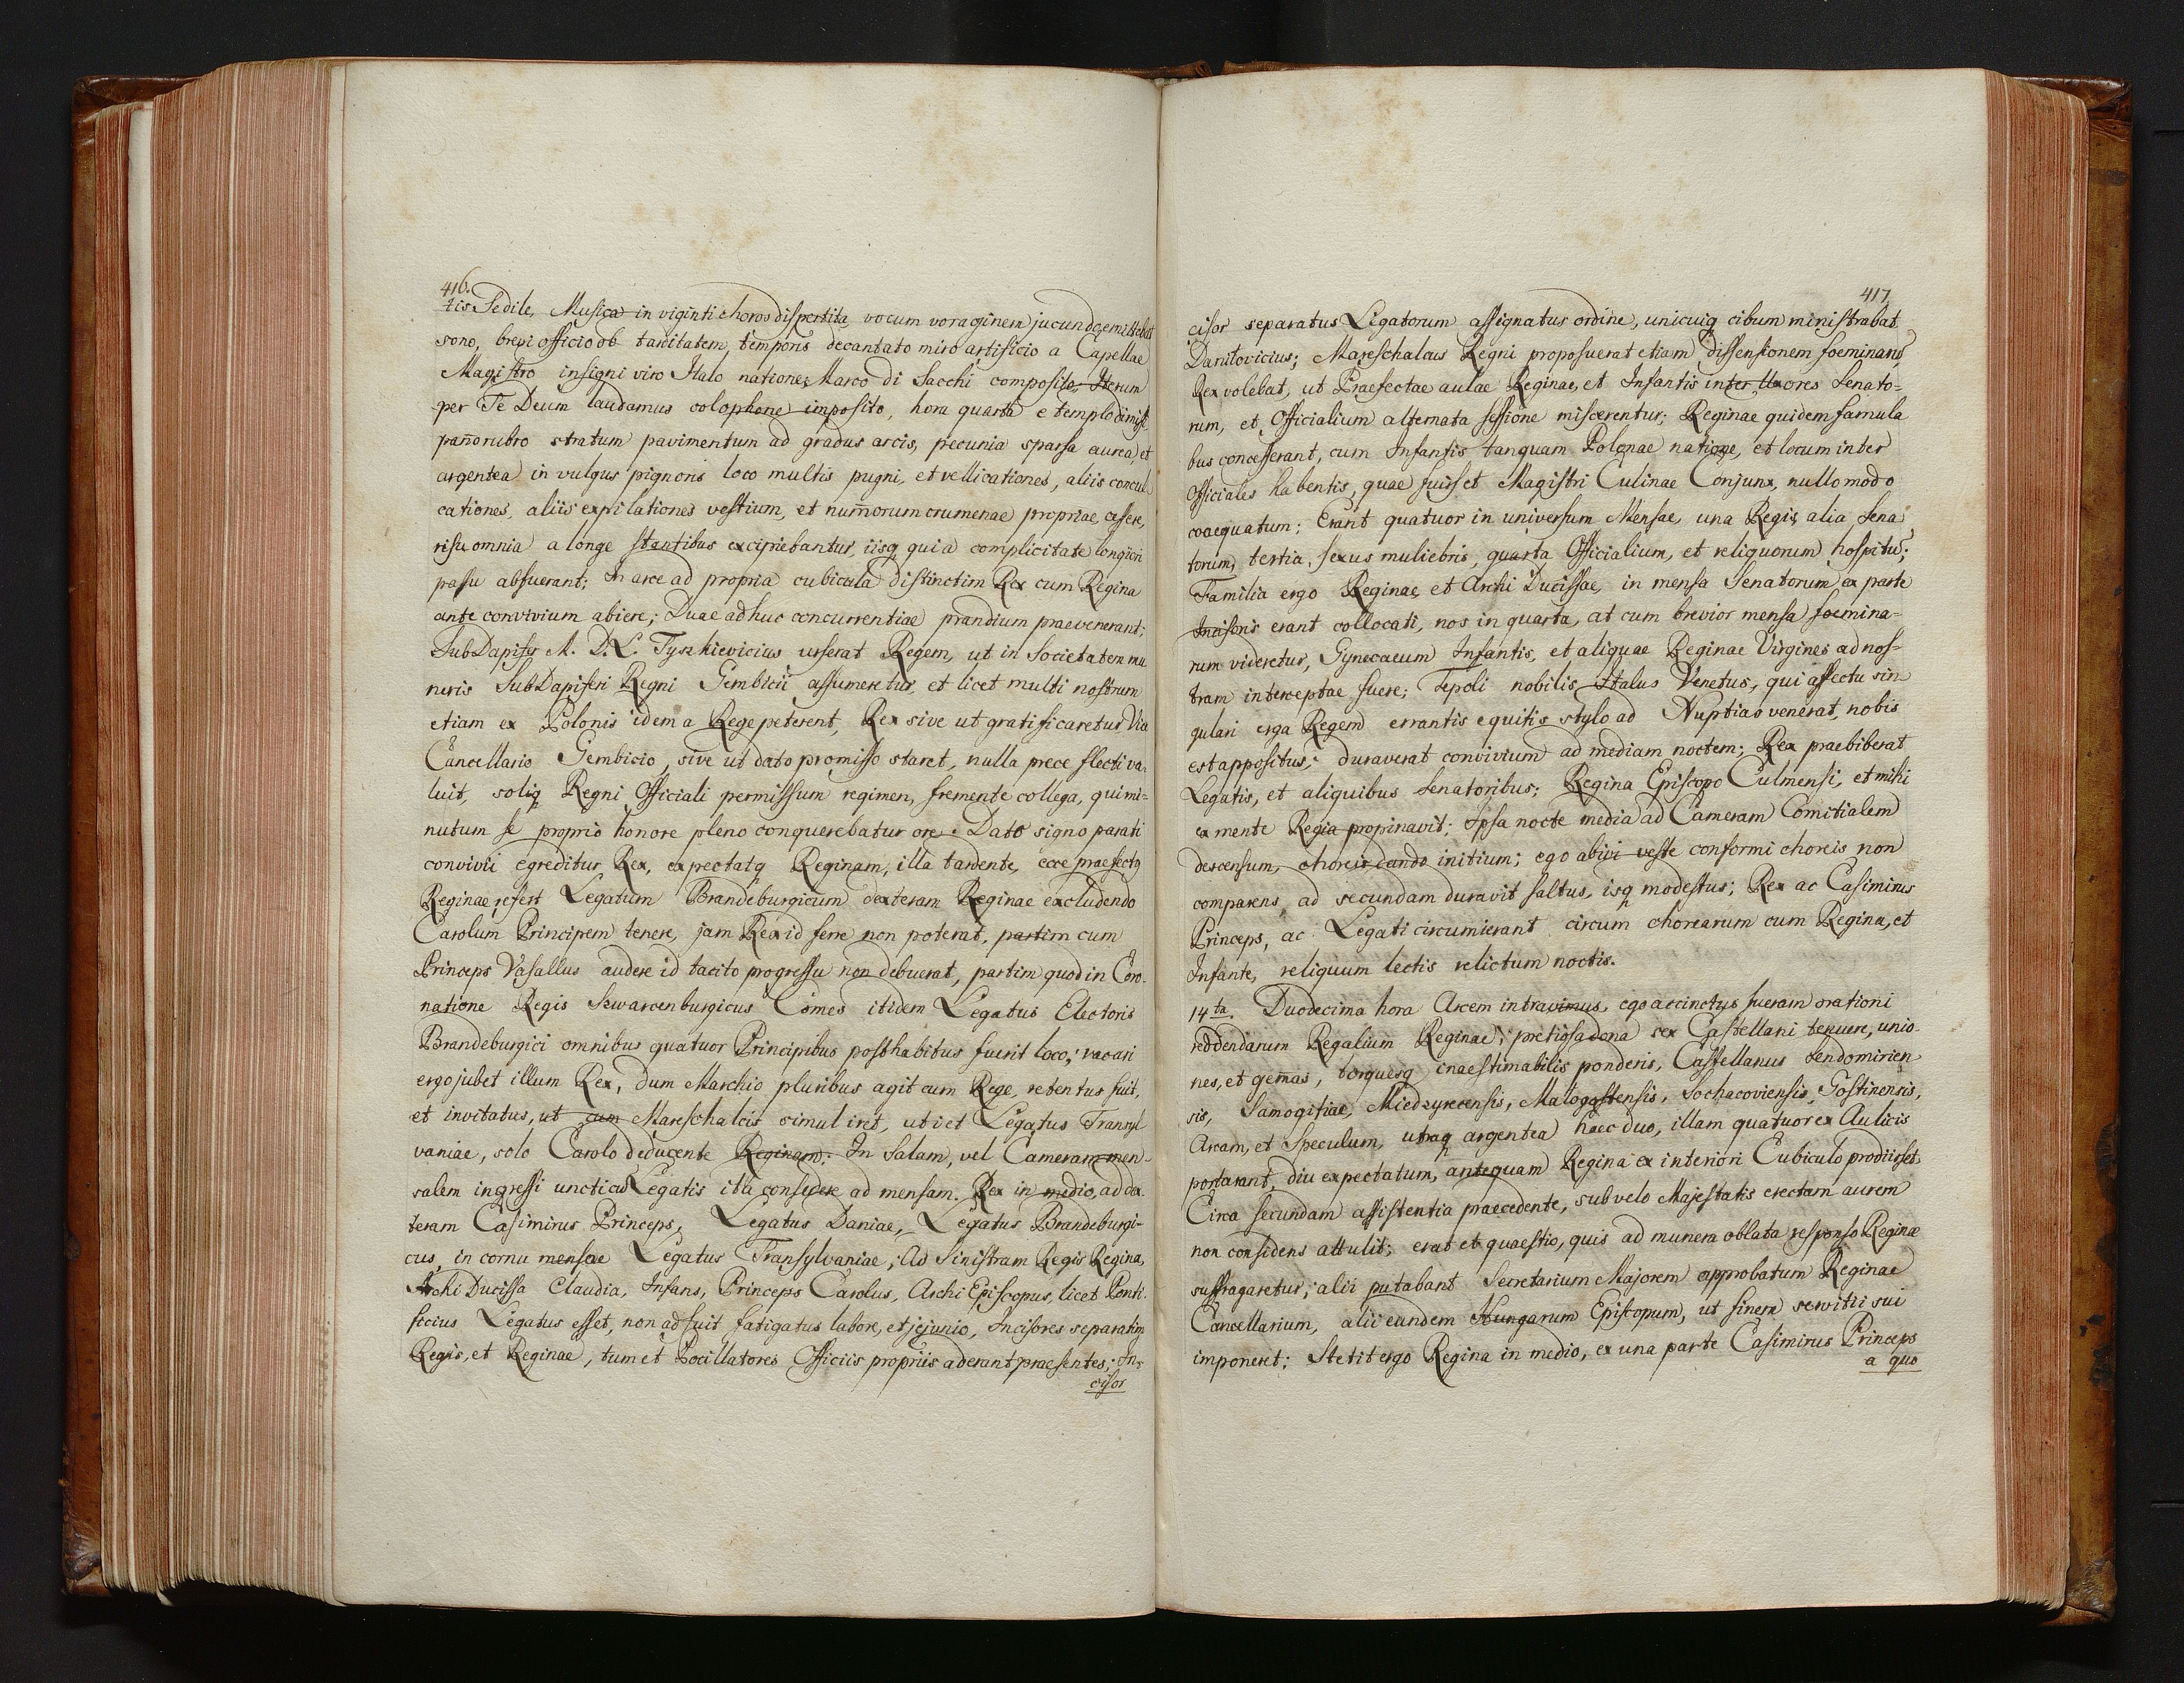 416.
tis Sedile, Musica in viginti choros dispertita, vocum voraginem jucunde emittebat
sono, brevi officio ob tarditatem temporis decantato miro artificio a Capellae
Magistro insigni viro Italo natione, Marco di Sacchi composito. Iterum
per Te Deum laudamus colophone imposito, hora quarta e templo dimissi
pañorubro stratum pavimentum ad gradus arcis, pecunia sparsa aurea, et
argentea in vulgus pignoris loco multis pugni, et vellicationes, aliis concul
cationes, aliis expilationes vestium, et num̃orum crumenae propriae cessere,
risu omnia a longe stantibus excipiebantur, iisq quia complicitate longiori
passu absuerant; In arce ad propria cubicula distinctim Rex cum Regina
ante convivium abiere; Duae adhuc concurrentiae prandium praevenerant;
SubDapifer M. D. L. Tyszkievicius urserat Regem, ut in Societatem mu
neris SubDapiferi Regni Gembicii assumeretur, et licet multi nostrum
etiam ex Polonis idem a Rege peterent, Rex sive ut gratificaretur Vice
Cancellario Gembicio, sive ut dato promisso staret, nulla prece flecti va-
luit, soliq Regni Officiali permissum regimen, fremente collega, qui mi-
nutum se proprio honore pleno conquerebatur ore. Dato signo parati
convivii egreditur Rex, expectatq Reginam, illa tardente, ecce praefectq
Reginae refert Legatum Brandeburgicum dexteram Reginae excludendo
Carolum Principem tenere, jam Rex id ferre non poterat, partim cum
Princeps Vasallus audere id tacito progressu non debuerat, partim quod in Coro-
natione Regis Szwarcenburgicus Comes itidem Legatus Electoris
Brandeburgici omnibus quatuor Principibus posthabitus fuerit loco; vacari
ergo jubet illum Rex, dum Marchio pluribus agit cum Rege, retentus fuit,
et invitatus, ut cum Mareschalcis simul iret, ut iet Legatus Transyl
vaniae, solo Carolo deducente Reginam. In Salam, vel Cameram men-
salem ingressi uncticu Legatis ita consedere ad mensam. Rex in medio, ad dex
teram Casimirus Princeps, Legatus Daniae, Legatus Brandeburgi-
cus, in cornu mensae Legatus Transylvaniae; Ad Sinistram Regis Regina,
Archi Ducissa Claudia, Infans, Princeps Carolus, Archi Episcopus, licet Ponti-
ficius Legatus esset, non adfuit fatigatus labore, et jejunio, Incisores separatim
Regis, et Reginae, tum et Pocillatores Officiis propriis aderant praesentes; In-
cisor
417
cisor separatus Legatorum assignatus ordine, unicuiq cibum ministrabat
Daniłovicius; Mareschalcus Regni proposuerat etiam dissensionem foeminarũ,
Rex volebat, ut Praefectae aulae Reginae, et Infantis inter Uxores Senato-
rum, et Officialium alternata sessione miscerentur; Reginae quidem famula
bus concesserant, cum Infantis tanquam Polonae natione, et locum inter
Officiales habentis, quae fuisset Magistri Culinae Conjunx, nullo modo
coaequatum; Erant quatuor in universum Mensae, una Regis, alia Sena
torum, tertia sexus muliebris, quarta Officialium, et reliquorum hospitũ;
Familia ergo Reginae, et Archi Ducissae, in mensa Senatorum ex parte
Incisoris erant collocati, nos in quarta, at cum brevior mensa foemina-
rum videretur, Gynecaeum Infantis, et aliquae Reginae Virgines ad nos-
tram interceptae fuere; Tepoli nobilis Italus Venetus, qui affectu sin
gulari erga Regem errantis equitis stylo ad Nuptias venerat, nobis
est appositus; duraverat convivium ad mediam noctem; Rex praebiberat
Legatis, et aliquibus Senatoribus; Regina Episcopo Culmensi, et mihi
ex mente Regia propinavit; Ipsa nocte media ad Cameram Comitialem
descensum, choreis dando initium; ego abivi veste conformi choreis non
comparens, ad secundam duravit saltus, isq modestus; Rex ac Casimirus
Princeps, ac Legati circumierant circum chorearum cum Regina, et
Infante, reliquum lectis relictum noctis.
14ta. Duodecima hora Arcem intravimus, ego accinctus fueram orationi
reddendarum Regalium Reginae; pretiosa dona sex Castellani tenuere, unio-
nes, et gem̃as, torquesq inaestimabilis ponderis, Castellanus Sendomirien
sis, Samogitiae, Miedzyrecensis, Malogostensis, Sochacoviensis, Gostinensis,
Arcam, et Speculum, utraq argentea haec duo, illam quatuor ex Aulicis
portarant, diu expectatum, antequam Regina ex interiori Cubiculo prodiisset,
Circa secundam assistentia praecedente, sub velo Majestatis erectam aurem
non considens attulit; erat et quaestio, quis ad munera oblata responso Reginae
suffragaretur; alii putabant Secretarium Majorem approbatum Reginae
Cancellarium, alii eundem Hungarum Episcopum, ut finem servitii sui
imponeret; Stetit ergo Regina in medio, ex una parte Casimirus Princeps
a quo